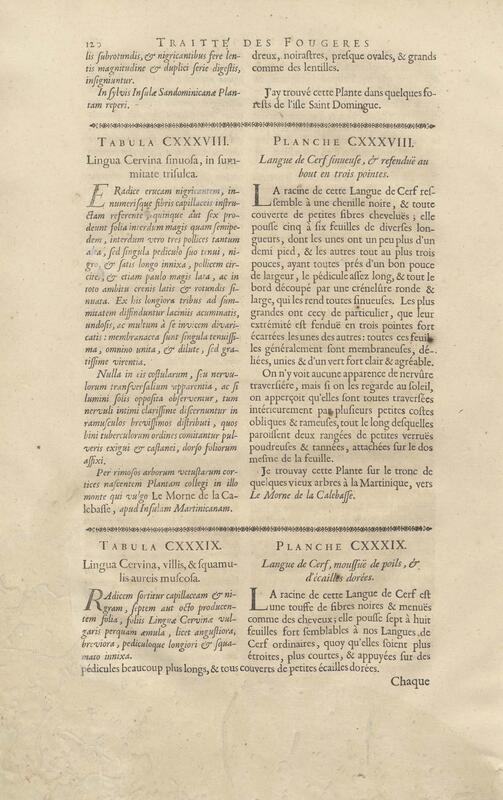 120 TRAITTÉ DES FOUGERES
lis subrotundis, & nigricantibus fere len-
tis magnitudine & duplici serie digestis,
insigniuntur.
In sylvis Insulæ Sandominicanæ Plan-
tam reperi.
dreux, noirastres, presque ovales, & grands
comme des lentilles.
J'ay trouvé cette Plante dans quelques fo-
rests de l'isle Saint Domingue.
TABULA CXXXVIII.
Lingua Cervina sinuosa, in sum-
mitate trisulca.
E Radice erucam nigricantem, in-
numerisque fibris capillaceis instru-
ctam referente, quinque aut sex pro-
deunt folia interdum magis quam semipe-
dem, interdum vero tres pollices tantum
alta, sed singula pediculo suo tenui, ni-
gro, & satis longo innixa, pollicem cir-
citer, & etiam paulo magis lata, ac in
toto ambitu crenis latis & rotundis si-
nuata. Ex his longiora tribus ad sum-
mitatem diffinduntur laciniis acuminatis,
undosis, ac multum à se invicem divari-
catis: membranacea sunt singula tenuissi-
ma, omnino unita, & dilute, sed gra-
tissime virentia.
Nulla in eis costularum, seu nervu-
lorum transversalium apparentia, ac si
lumini solis opposita observentur, tum
nervuli intimi clarissime discernuntur in
ramusculos brevissimos distributi, quos
bini tuberculorum ordines comitantur pul-
veris exigui & castanei, dorso foliorum
affixi.
Per rimosos arborum vetustarum cor-
tices nascentem Plantam collegi in illo
monte qui vulgo Le Morne de la Ca-
lebasse, apud Insulam Martinicanam.
PLANCHE CXXXVIII.
Langue de Cerf sinueuse, & refenduë au
bout en trois pointes.
LA racine de cette Langue de Cerf res-
semble à une chenille noire, & toute
couverte de petites fibres cheveluës; elle
pousse cinq à six feuilles de diverses lon-
gueurs, dont les unes ont un peu plus d'un
demi pied, & les autres tout au plus trois
pouces, ayant toutes prés d'un bon pouce
de largeur, le pédicule assez long, & tout le
bord découpé par une crénelure ronde &
large, qui les rend toutes sinueuses. Les plus
grandes ont cecy de particulier, que leur
extrémité est fenduë en trois pointes fort
écartées les unes des autres: toutes ces feuil-
les généralement sont membraneuses, dé-
liées, unies & d'un vert fort clair & agréable.
On n'y voit aucune apparence de nervûre
traversiére, mais si on les regarde au soleil,
on apperçoit qu'elles sont toutes traversées
intérieurement par plusieurs petites costes
obliques & rameuses, tout le long desquelles
paroissent deux rangées de petites verruës
poudreuses & tannées, attachées sur le dos
mesme de la feuille.
Je trouvay cette Plante sur le tronc de
quelques vieux arbres à la Martinique, vers
Le Morne de la Calebasse.
TABULA CXXXIX.
Lingua Cervina, villis, & squamu-
lis aureis muscosa.
RAdicem sortitur capillaceam & ni-
gram, septem aut octo producen-
tem folia, foliis Linguæ Cervinæ vul-
garis perquam æmula, licet angustiora,
breviora, pediculoque longiori & squa-
mato innixa.
PLANCHE CXXXIX.
Langue de Cerf, moussuë de poils, &
d'écailles dorées.
LA racine de cette Langue de Cerf est
une touffe de fibres noires & menuës
comme des cheveux; elle pousse sept à huit
feuilles fort semblables à nos Langues de
Cerf ordinaires, quoy qu'elles soient plus
étroites, plus courtes, & appuyées sur des
pédicules beaucoup plus longs, & tous couverts de petites écailles dorées.
Chaque